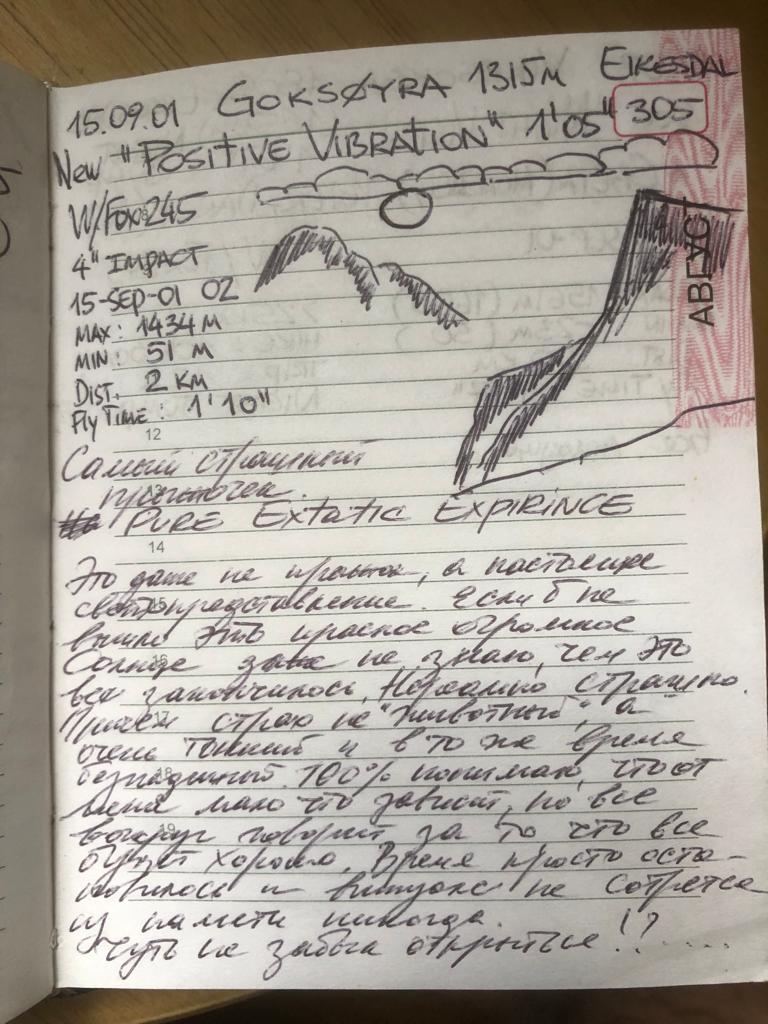 15.09.01 GOKSØYRA 1315M EIKESDAL
New "POSITIVE VIBRATION" 1'05" 305
W/FOX 245
4" IMPACT
15-SEP-01 02
MAX: 1434 M
MIN: 51 M
DIST. 2 KM
Fly TIME: 1'10"
АВГУС
12
Самый страшный
прыжочек.
PURE Extatic EXPIRINCE
14
Это даже не прыжок, а настоящее
светопредставление. Если б не
вышло это красное огромное
Солнце не знаю, чем это
все закончилось, Нереально страшно.
Причем страх не "животный", а
очень тонкий и в то же время
безнадежный. 100% понимаю, что от
меня мало что зависит, но все
вокруг говорит за то что все
будет хорошо. Время просто оста-
новилось и не сотрется
из памяти никогда.
Чуть не забыл открыться!?.....